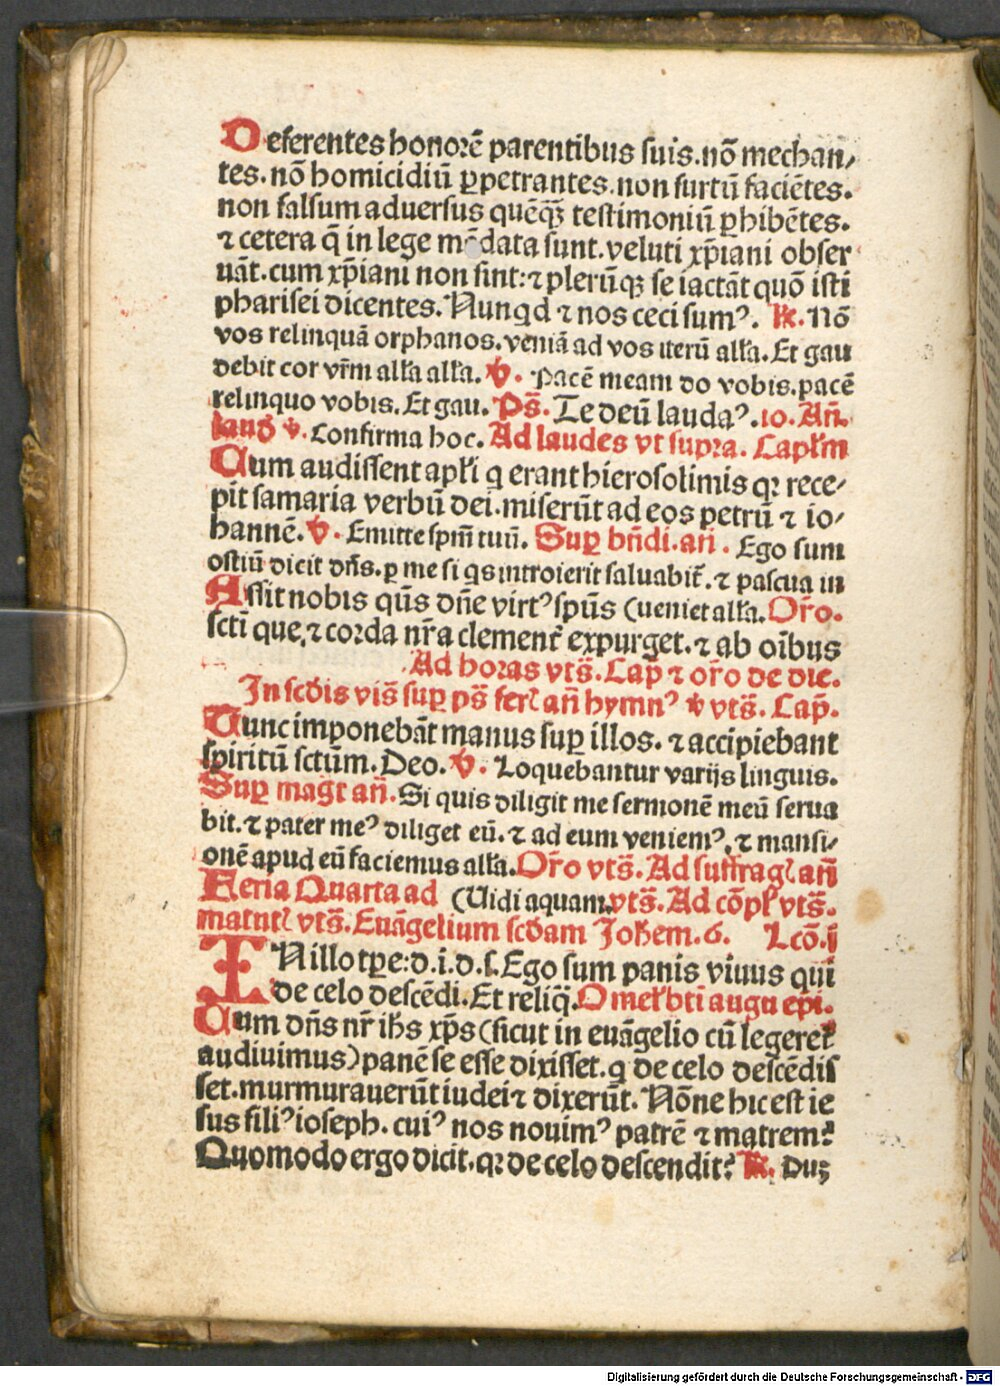 Deferentes honorē parentibus suis. nō mechan/
tes. nō homicidiū ꝑpetrantes. non furtū faciētes.
non falsum aduersus quēqꝫ testimoniū ꝑhibētes.
⁊ cetera q̄ in lege mādata sunt. veluti xp̄iani obser
uāt. cum xp̄iani non sint: ⁊ plerūqꝫ se iactāt quō isti
pharisei dicentes. Nunqd ⁊ nos ceci sumꝰ. ℟. Nō
vos relinquā orphanos. veniā ad vos iterū alľa. Et gau
debit cor vr̄m alľa alľa. ℣. Pacē meam do vobis. pacē
relinquo vobis. Et gau. Ps̄. Te deū laudaꝰ. 10. Añ.
laud ℣. Confirma hoc. Ad laudes vt supra. Capľm
Cum audissent apľi q erant hierosolimis qꝛ rece/
pit samaria verbū dei. miserūt ad eos petrū ⁊ io/
hannē. ℣. Emitte spm̄ tuū. Suꝑ bn̄di. añ. Ego sum
ostiū dicit dn̄s. ꝑ me si qs introierit saluabit̄. ⁊ pascua in
Assit nobis qūs dn̄e virtꝰ spūs (ueniet alľa. Or̄o.
scti que, ⁊ corda nr̄a clement̄ expurget. ⁊ ab oībus
Ad horas vts̄. Cap̄ ⁊ or̄o de die.
In scd̄is vis̄ suꝑ ps̄ fer̄ añ hymnꝰ ℣ vts̄. Cap̄.
Tunc imponebāt manus suꝑ illos. ⁊ accipiebant
spiritū sctūm. Deo. ℣. Loquebantur varijs linguis.
Suꝑ magt añ. Si quis diligit me sermonē meū serua
bit. ⁊ pater meꝰ diliget eū. ⁊ ad eum veniemꝰ, ⁊ mansi/
onē apud eū faciemus alľa. Or̄o vts̄. Ad suffraḡ añ
Feria Quarta ad (Uidi aquam. vts̄. Ad cōpľ vts̄.
matut̄ vts̄. Euāgelium scd̄am Joħem. 6. Lcō. j
IN illo tꝑe: d. i. d. s. Ego sum panis viuus qui
de celo descēdi. Et reliq̄. Omeľ bti augu epi.
Cum dn̄s nr̄ ih̄s xp̄s (sicut in euāgelio cū legeret̄
audiuimus) panē se esse dixisset. q de celo descēdis
set. murmurauerūt iudei ⁊ dixerūt. Nōne hic est ie
sus filiꝰ ioseph. cuiꝰ nos nouimꝰ patrē ⁊ matrem?
Quomodo ergo dicit. qꝛ de celo descendit? ℟. Duꝫ
Digitalisierung gefördert durch die Deutsche Forschungsgemeinschaft - DFG